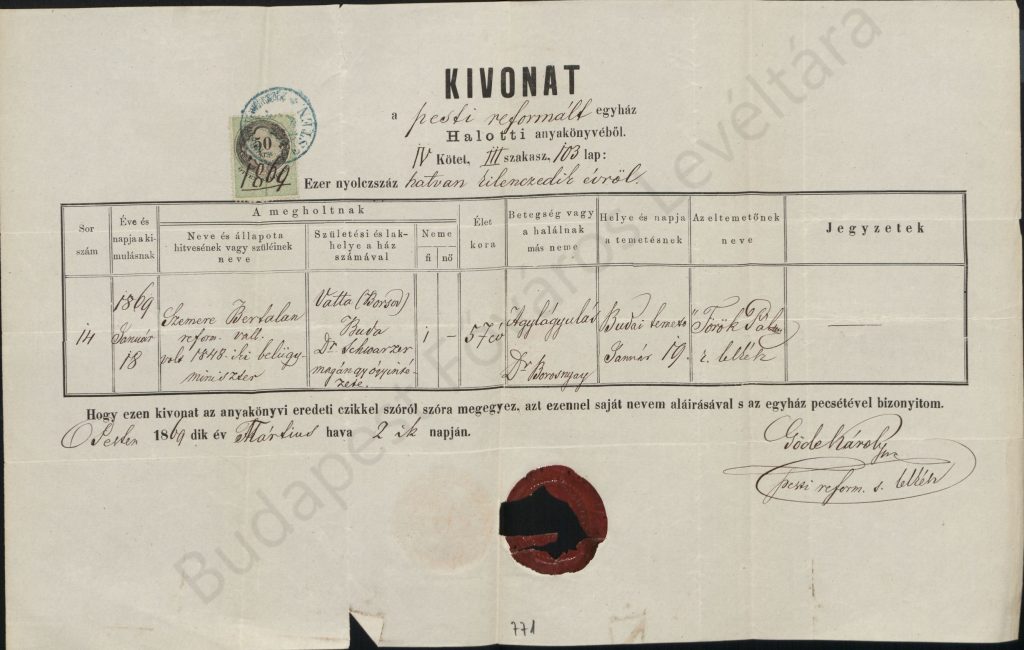 KIVONAT
a pesti reformált egyház
Halotti anyakönyvéből.
IV Kötet, III szakasz, 103 lap:
50
1869
Ezer nyolczszáz hatvan kilenczedik évről.
Sor szám
Éve és napja a kimulásnak
A megholtnak
Neve és állapota hitvesének vagy szüleinek neve
Születési és lakhelye a ház számával
Neme
fi
nő
Élet kora
Betegség vagy a halálnak más neme
Helye és napja a temetésnek
Az eltemetőnek neve
Jegyzetek
14
1869
Január
18
Szemere Bertalan
reform. vall.
volt 1848-iki belügy-
miniszter
Vatta (Borsod)
Buda
Dr Schwarzer
magángyógyinté-
zete.
1
—
57 év
Agylágyulás
Dr Borosnyay
Budai temető
Január 19.
Török Pál
r. lelkész
Hogy ezen kivonat az anyakönyvi eredeti czikkel szóról szóra megegyez, azt ezennel saját nevem aláirásával s az egyház pecsétével bizonyitom.
Pesten 1869 dik év Mártius hava 2 ik napján.
Göde Károly
pesti reform. s. lelkész
771
Budapest Főváros Levéltára